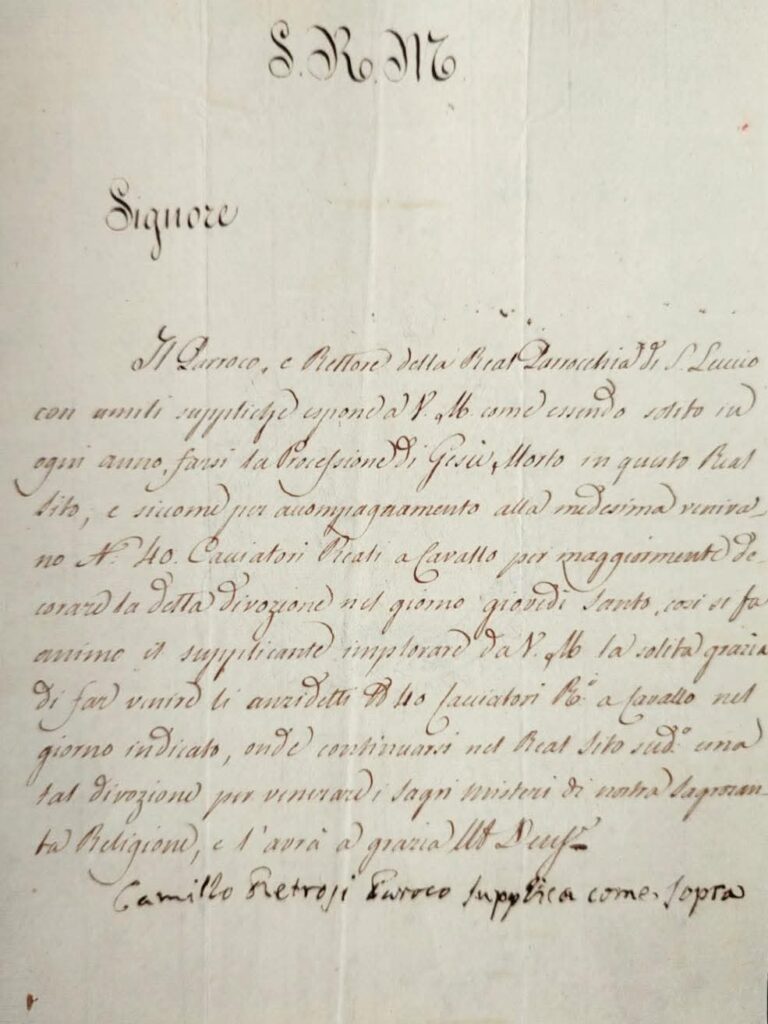 S. R. M.
Signore
Il Parroco, e Rettore della Real Parrocchia di S. Leucio
con umili suppliche espone a V. M. come essendo solito in
ogni anno, farsi la Processione di Gesù Morto in questo Real
Sito, e siccome per accompagnamento alla medesima veniva-
no N.° 40. Cacciatori Reali a Cavallo per maggiormente de-
corare la detta divozione nel giorno giovedì Santo, così si fa
animo il supplicante implorare da V. M. la solita grazia
di far venire li anzidetti 40 Cacciatori R.i a Cavallo nel
giorno indicato, onde continuarsi nel Real Sito sud.o una
tal divozione per venerare i sagri misteri di nostra Sagrosan-
ta Religione, e l'avrà a grazia Ut Deus
Camillo Retrosi Parroco supplica come sopra